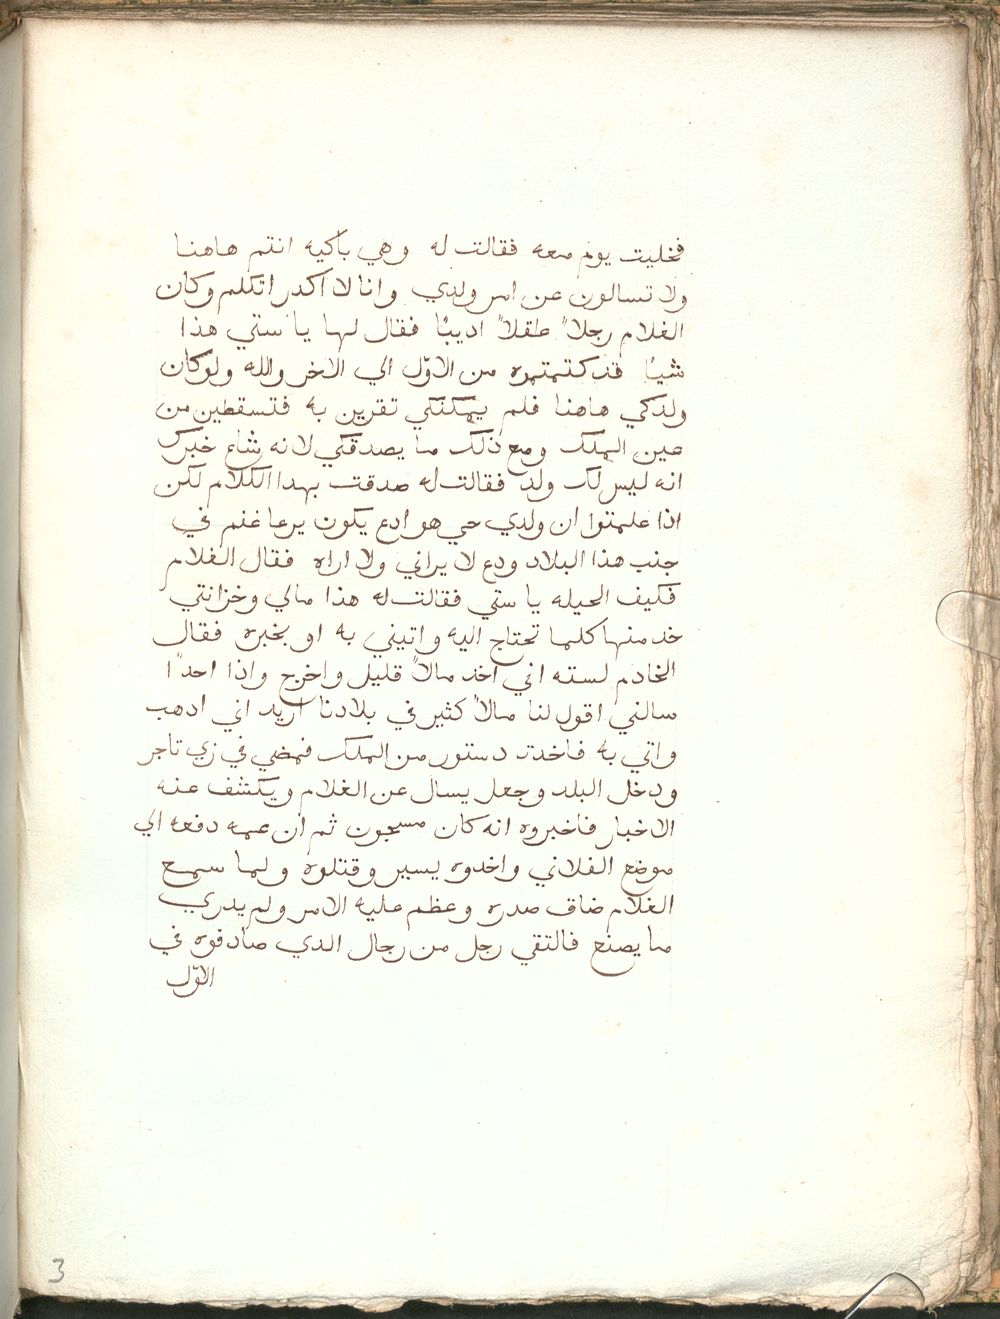 فخليت يوم معه فقالت له وهي باكيه انتم هاهنا
ولا تسالون عن امر ولدي وانا لا اكدر اتكلم وكان
الغلام رجلاً طفلاً اديبًا فقال لها يا ستي هذا
شيًا قد كتمتمره من الاوّل الي الاخر والله ولوكان
ولدكي هاهنا فلم يمكنكي تقرين به فتسقطين من
عين الملك ومع ذلك ما يصدقكي لانه شاع خبرك
انه ليس لك ولد فقالت له صدقت بهدا الكلام لكن
اذا علمتوا ان ولدي حي هو ادع يكون يرعا غنم في
جنب هذا البلاد ودع لا يراني ولا اراه فقال الغلام
فكيف الحيله يا ستي فقالت له هذا مالي وخزانتي
خد منها كلما تحتاج اليه واتيني به او بخبره فقال
الخادم لسته اني اخد مالاً قليل واخرج واذا احدًا
سالني اقول لنا مالاً كثير في بلادنا اريد اني ادهب
واتي به فاخدت دستور من الملك فمضي في زي تاجر
ودخل البلد وجعل يسال عن الغلام ويكشف عنه
الاخبار فاخبروه انه كان مسجون ثم ان عمه دفعه الي
موضع الفلاني واخدوه يسير وقتلوه ولما سمع
الغلام ضاق صدره وعظم عليه الامر ولم يدري
ما يصنع فالتقي رجل من رجال الدي صادفوه في
الاوّل
3